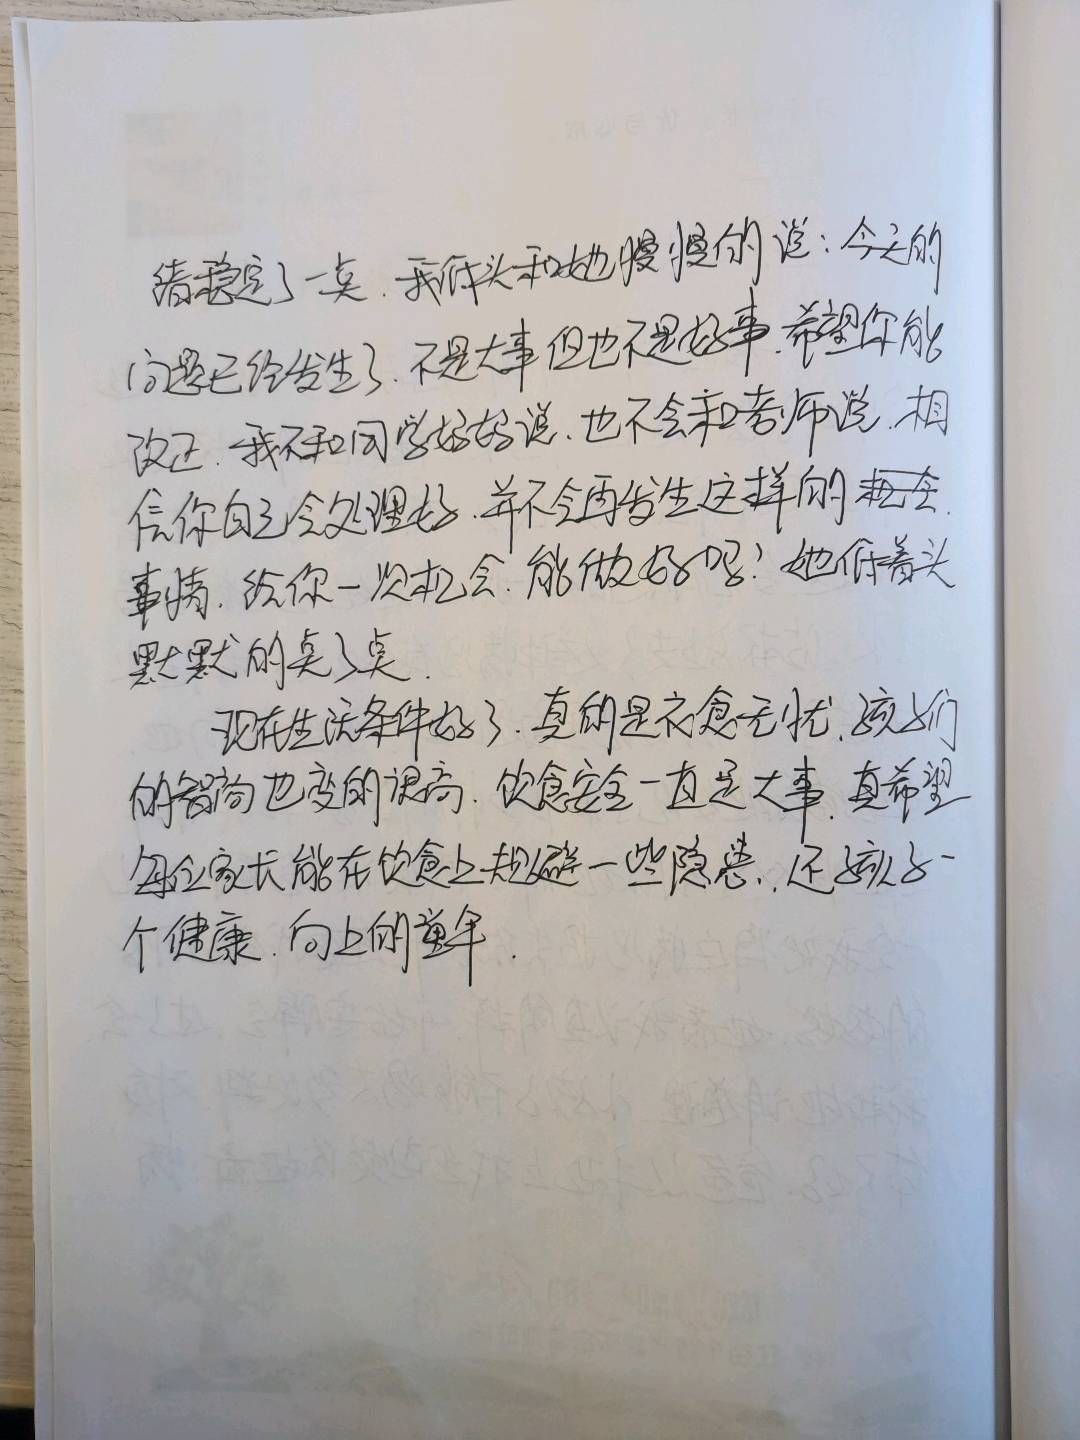 绪稳定了一点.我低头和她慢慢的说:今天的
问题已经发生了.不是大事但也不是好事.希望你能
改正.我不和同学好好说.也不会和老师说.相
信你自己会处理好.并不会再发生这样的机会.
事情.给你一次机会.能做好吗?她低着头
默默的点了点.
现在生活条件好了.真的是衣食无忧.孩子们
的智商也变的很高.饮食安全一直是大事.真希望
每位家长能在饮食上规避一些隐患.还孩子一
个健康.向上的童年.